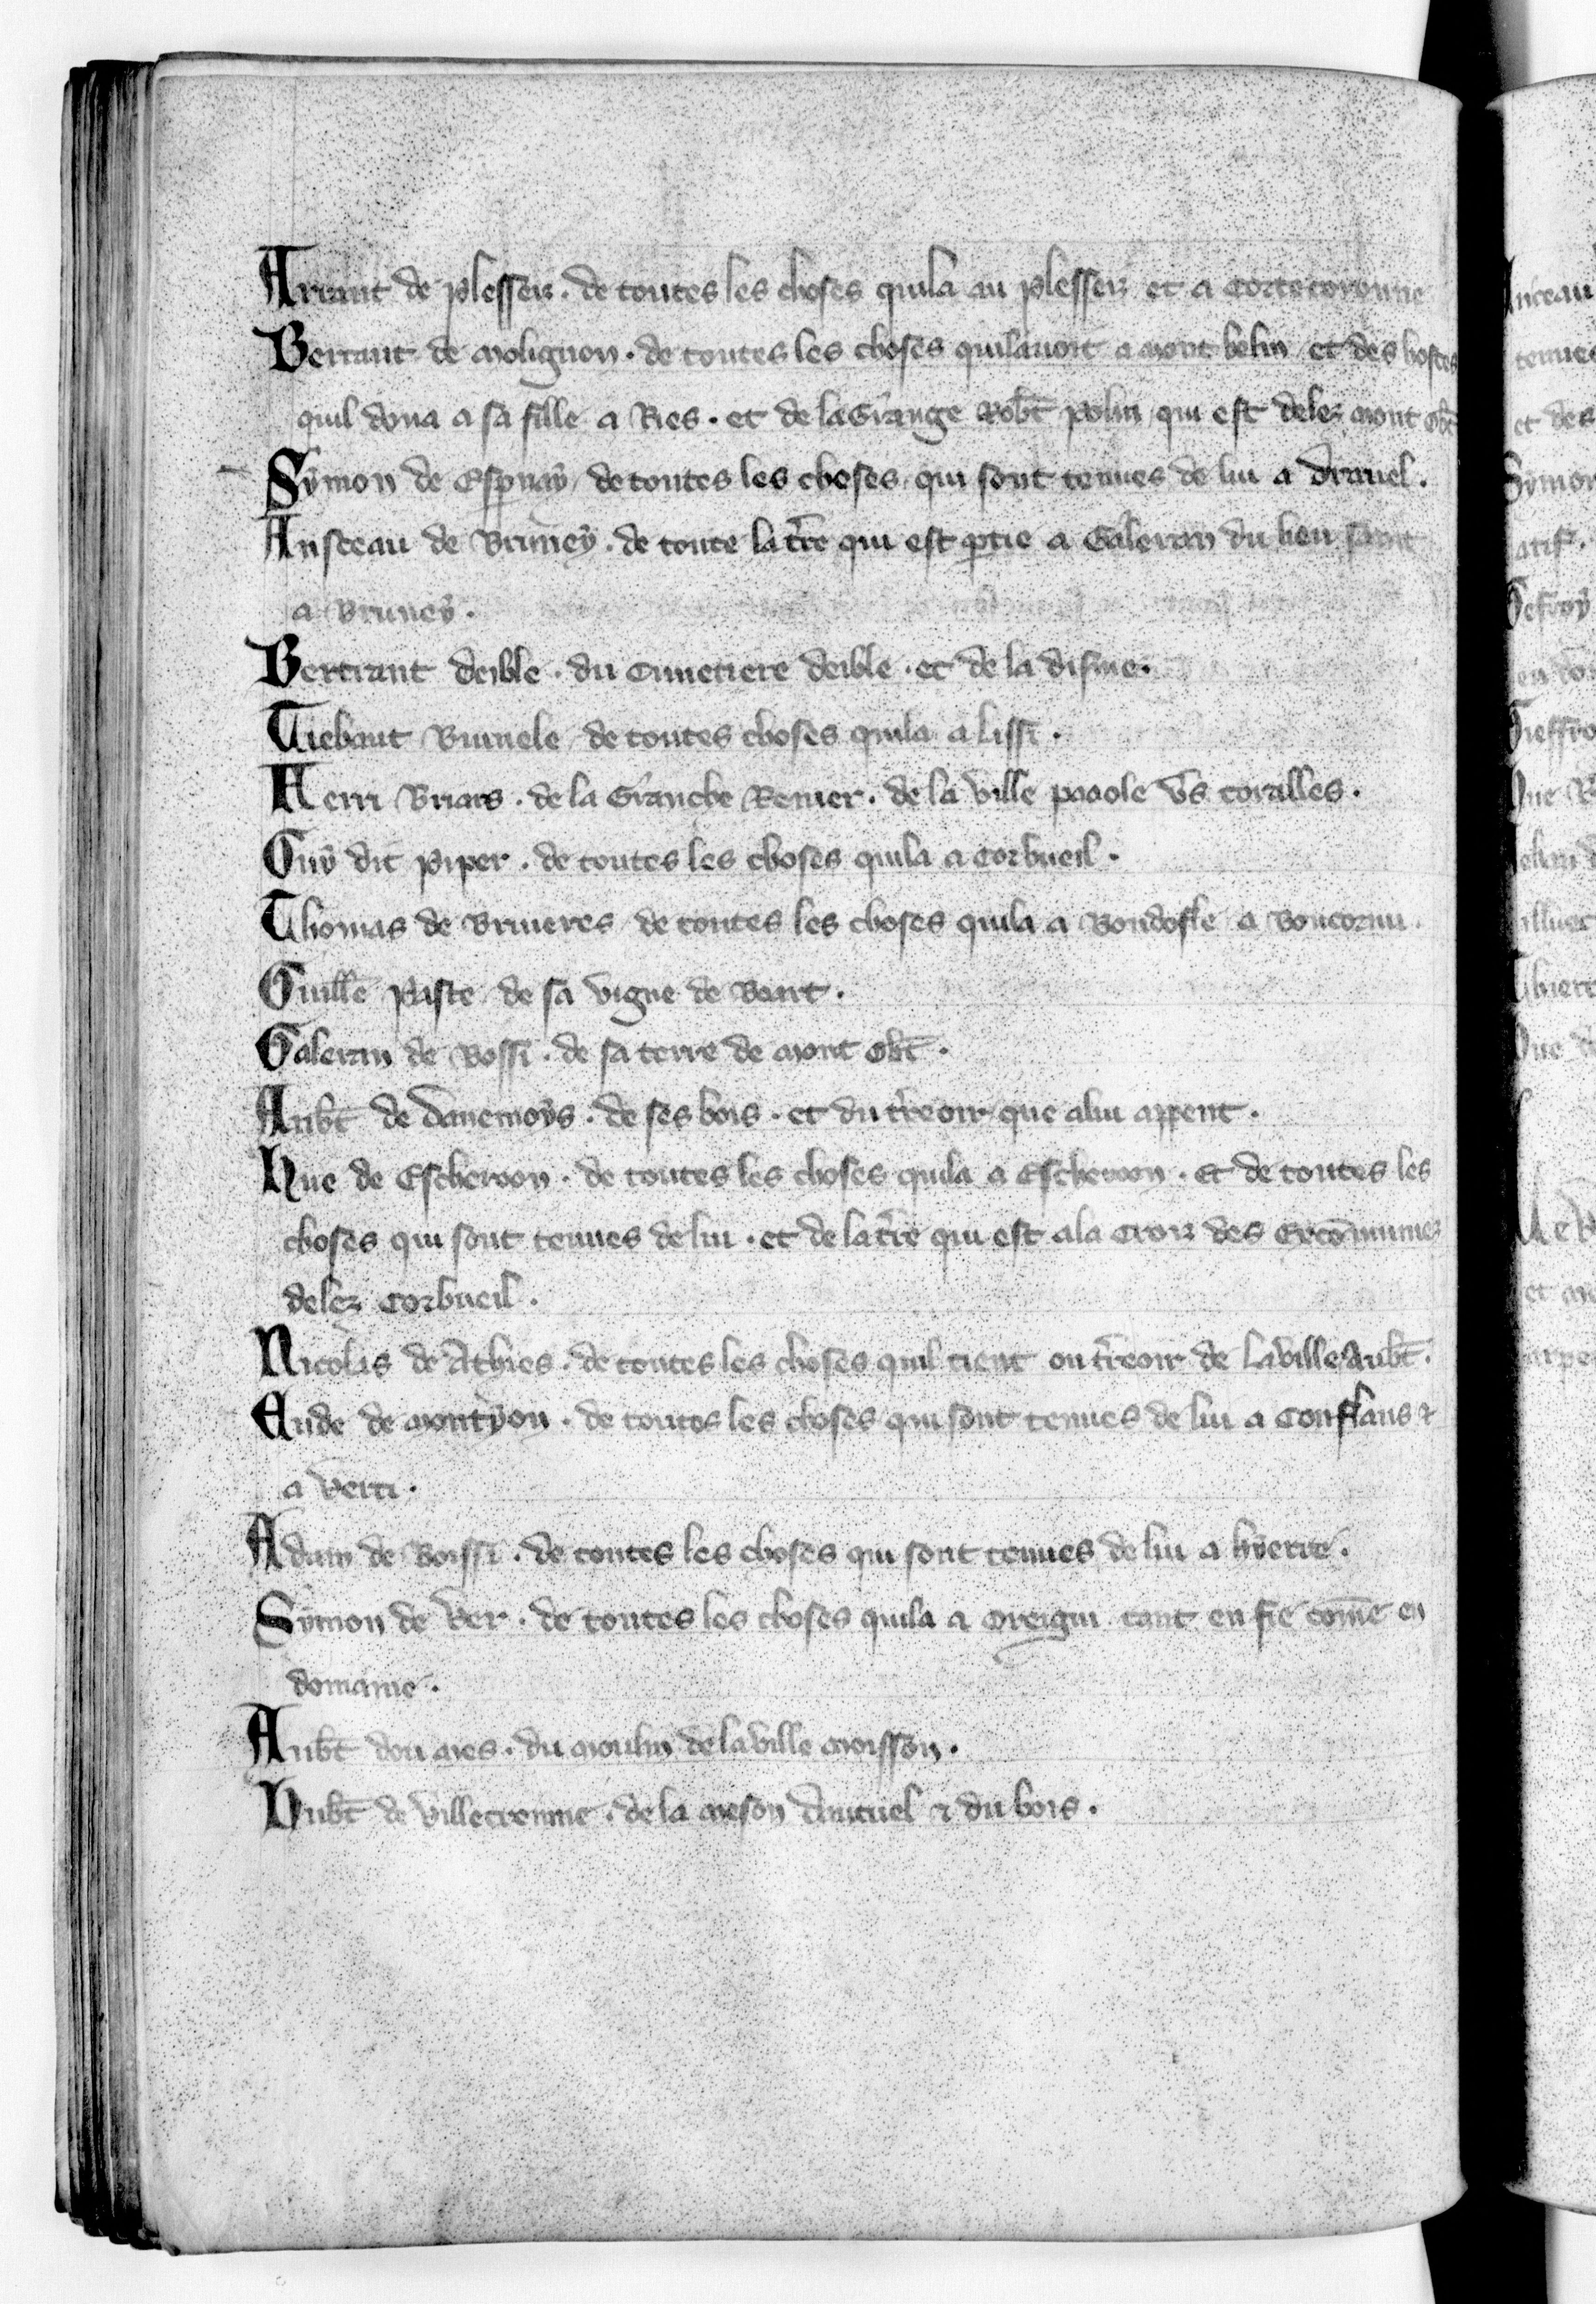 Arrant de plesseiz . de toutes les choses quila au plesseiz et a Cortecoronne
Bertaut de Molignon . de toutes les choses quilauoit a Mont belin et des hostes
quil dona a sa fille a Ries . et de la Grange Robt̄ Polin qui est delez Mont Obt̄
Symon de Espinay de toutes les choses qui sont tenues de lui a Drauel .
Ansceau de Bruney . de toute la tr̄re qui est ꝑtie a Galeran du lieu saint
a Bruney .
Bertrant deible . du Cimetiere deible . et de la disme .
Tiebaut Brunele de toutes choses quila a Lissi .
Herri Briars . de la Granche Renier . de la ville pooole v̄s Coralles .
Guy dit Piper . de toutes les choses quila a Corbueil .
Thomas de Brueres de toutes les choses quila a Bondofle a Boucornu .
Guill̄e Paste de sa vigne de Bart .
Galeran de Bossi . de sa terre de Mont Obt̄ .
Aubt̄ de Danemoys . de ses bois . et du tr̄reoir que alui appent .
Hue de Escheroon . de toutes les choses quila a Escheroon . Et de toutes les
choses qui sont tenues de lui . et de la tr̄re qui est ala Croiz des Excōmuniez
delez Corbueil .
Nicolas de Athies . de toutes les choses quil tient ou tr̄reoir de La ville Aubt̄ .
Eude de Montyon . de toutes les choses qui sont tenues de lui a Conflans ⁊
a Verti .
Adam de Boissi . de toutes les choses qui sont tenues de lui a hyerre .
Symon de Ver . de toutes les choses quila a Oreigni tant en fie com̄e en
domaine .
Aubt̄ dou Mes . du Moulin de la ville Moisson .
Hubt̄ de Villecrenne . de la Meson Dautuel ⁊ du bois .